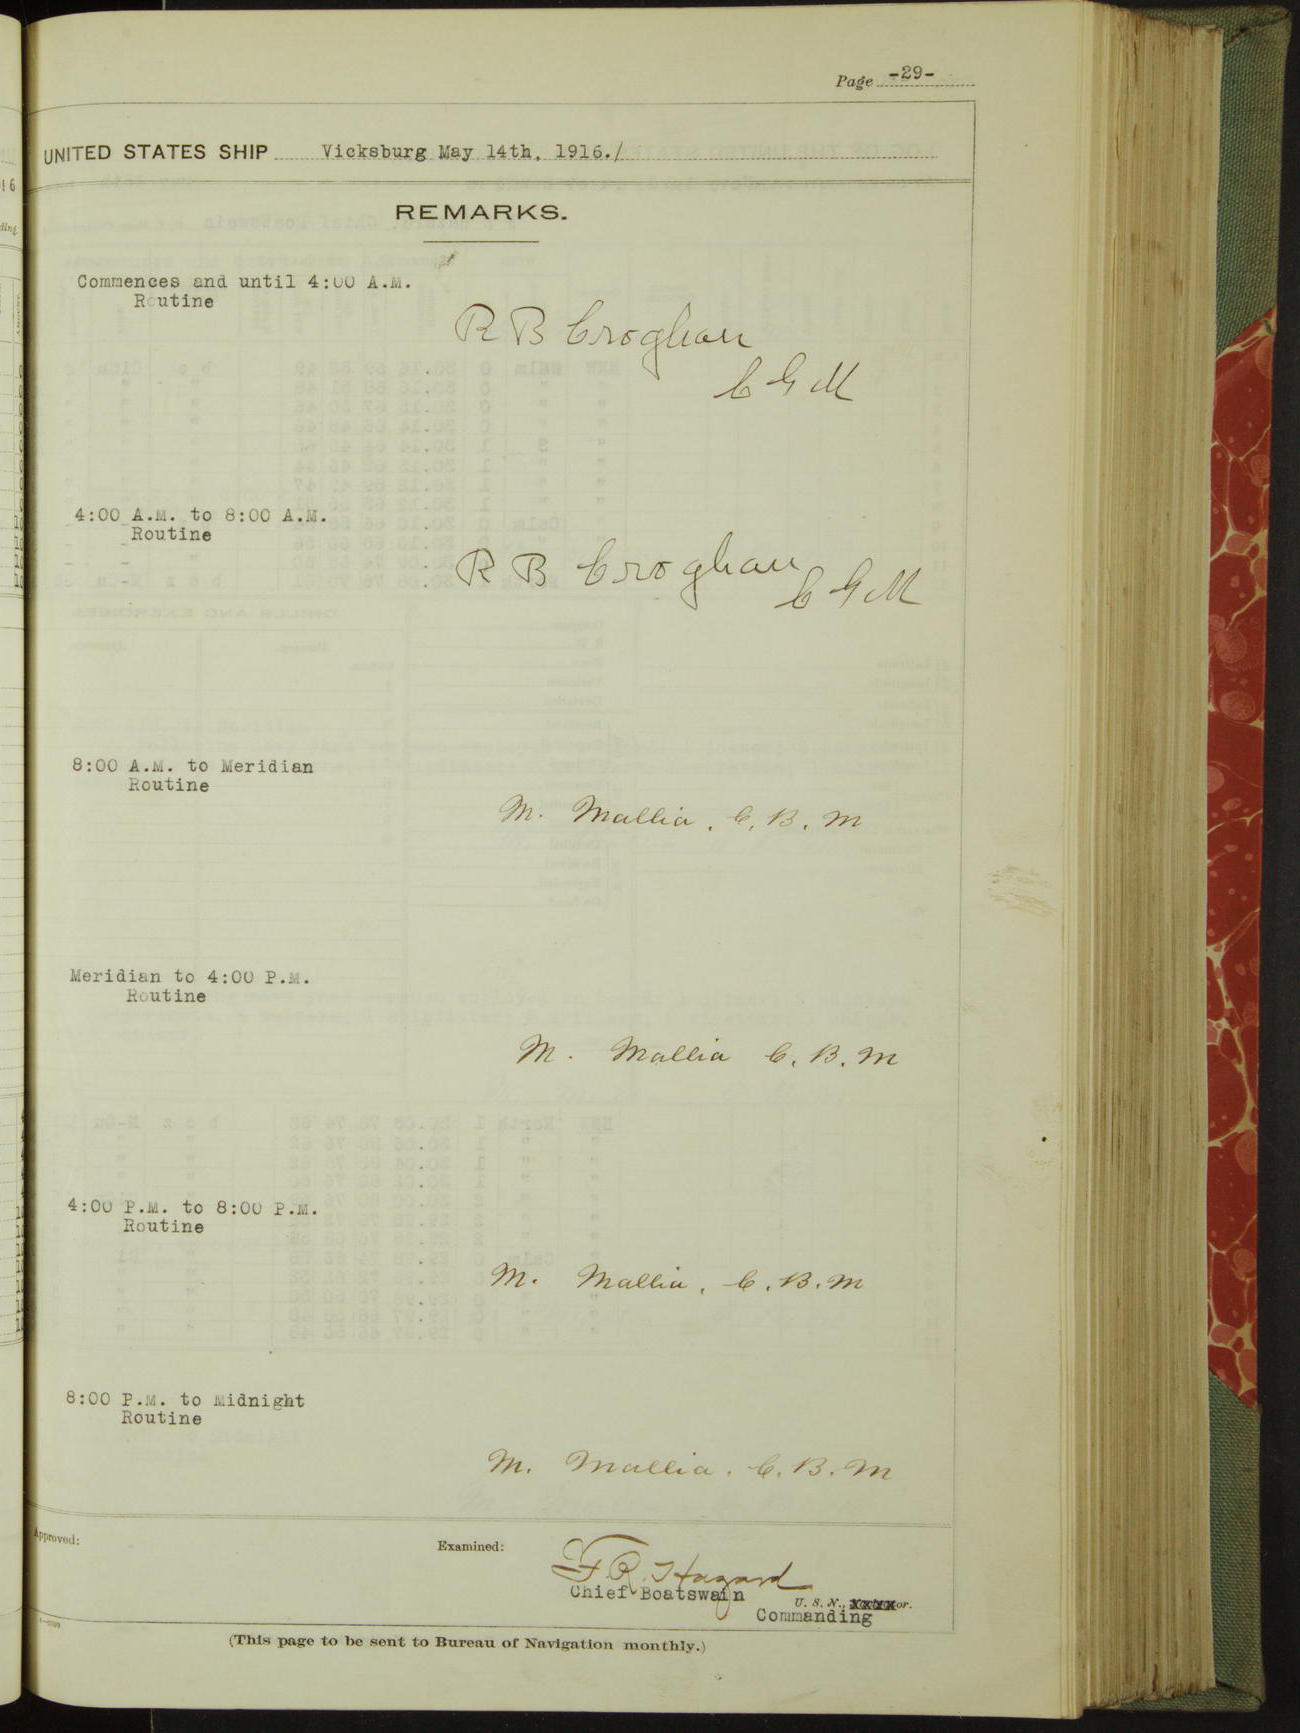 Page -29-
UNITED STATES SHIP Vicksburg May 14th, 1916./
REMARKS.
Commences and until 4:00 A.M.
Routine
R B Croghan
C G M
4:00 A.M. to 8:00 A.M.
Routine
R B Croghan
C G M
8:00 A.M. to Meridian
Routine
M. Mallia, C. B. M
Meridian to 4:00 P.M.
Routine
M. Mallia C. B. M
4:00 P.M. to 8:00 P.M.
Routine
M. Mallia, C. B. M
8:00 P.M. to Midnight
Routine
M. Mallia. C. B. M
Approved:
Examined:
F. R. Hazard
Chief Boatswain
U. S. N.,
Commanding
(This page to be sent to Bureau of Navigation monthly.)